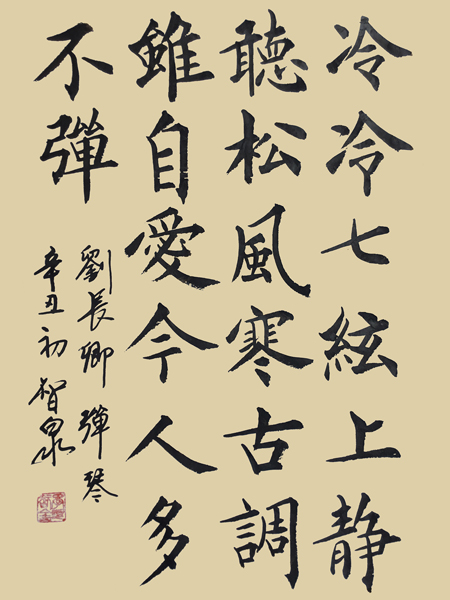 冷冷七絃上静
聽松風寒古調
雖自愛今人多
不彈
劉長卿 彈琴
辛丑初 智泉